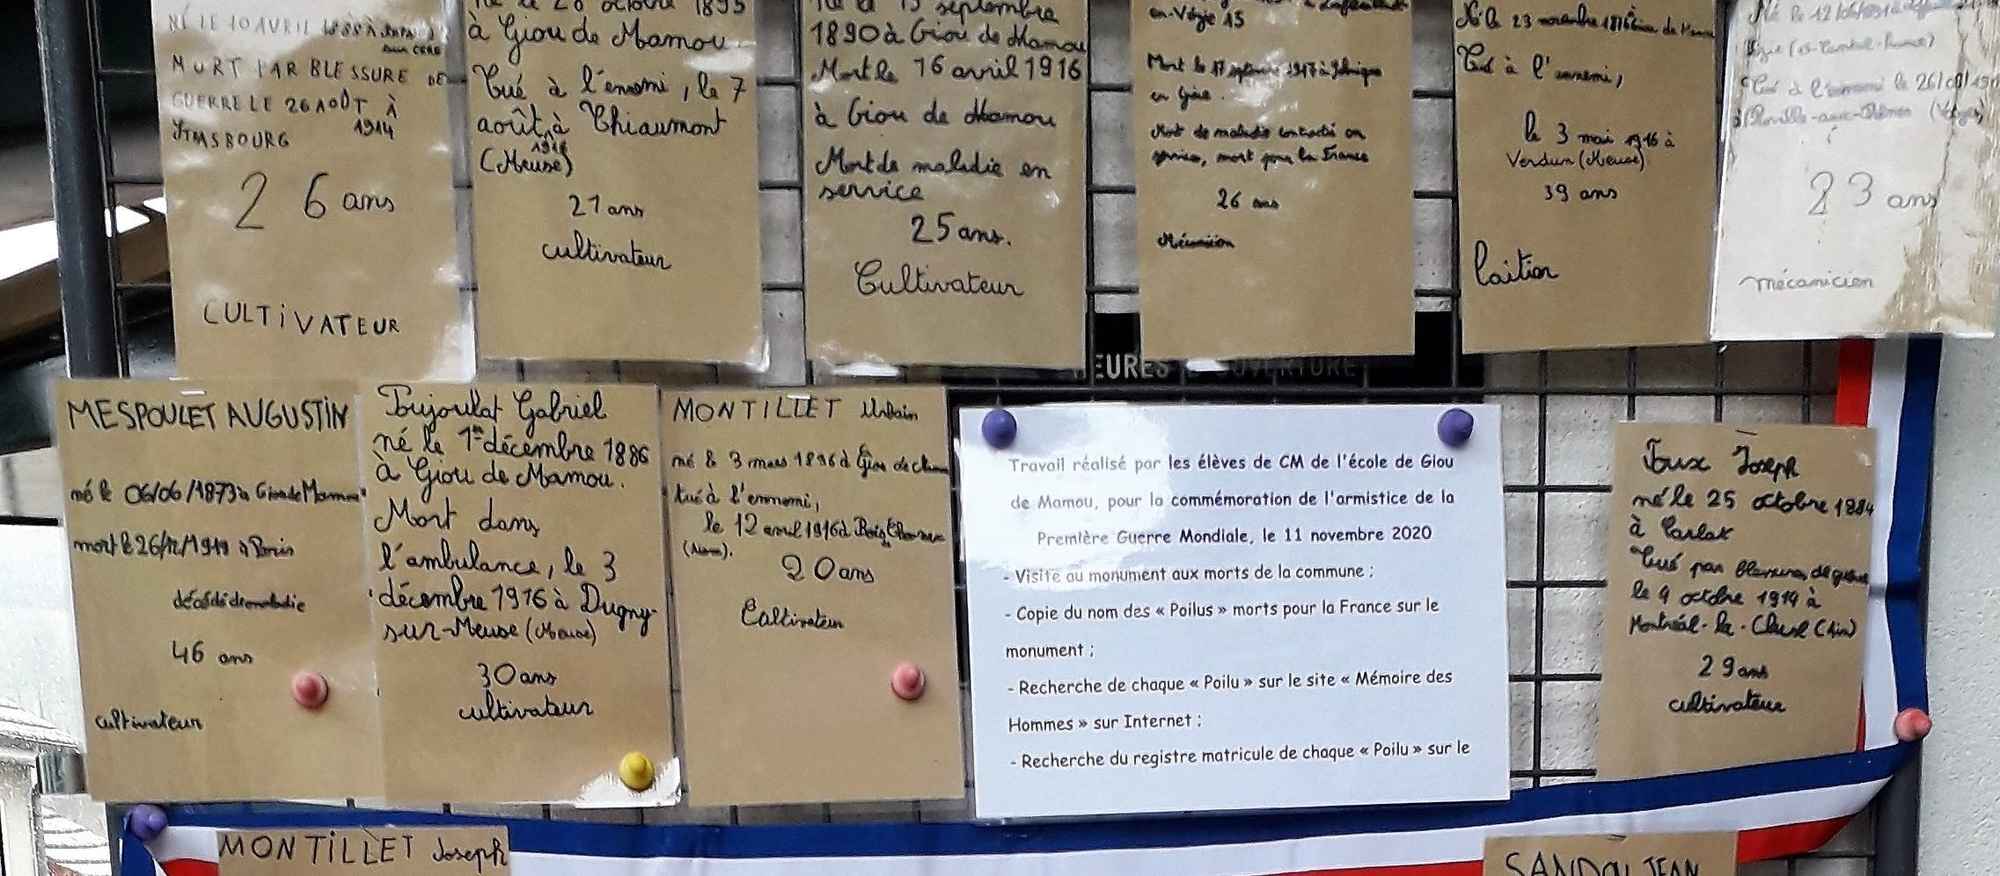 NÉ LE 10 AVRIL
MORT PAR BLESSURE DE
GUERRE LE 26 AOÛT À
1914
STRASBOURG
26 ans
CULTIVATEUR
né le 28 octobre 1895
à Giou de Mamou.
Tué à l'ennemi, le 7
août à Thiaumont
1916
(Meuse)
21 ans
cultivateur
septembre
1890 à Giou de Mamou
Mort le 16 avril 1916
à Giou de Mamou
Mort de maladie en
service
25 ans.
Cultivateur
15
Mort le 17 1917 à
en
Mort de maladie en
service, mort pour la France
26 ans
Né le 23 novembre 1876
Tué à l'ennemi,
le 3 mai 1916 à
Verdun (Meuse)
39 ans
laitier
Né le 12/06/
Tué à l'ennemi le 26/08/
(Vosges)
23 ans
mécanicien
EURES OUVERTURE
MESPOULET AUGUSTIN
né le 06/06/1873 à Giou de Mamou
mort le 26/12/1919 à Paris
décédé de maladie
46 ans
cultivateur
Toujoulat Gabriel
né le 1er décembre 1886
à Giou de Mamou.
Mort dans
l'ambulance, le 3
décembre 1916 à Dugny-
sur-Meuse (Meuse)
30 ans
cultivateur
MONTILLET Urbain
né le 3 mars 1896 à Giou de
tué à l'ennemi,
le 12 avril 1916 à Bois
20 ans
Cultivateur
Travail réalisé par les élèves de CM de l'école de Giou
de Mamou, pour la commémoration de l'armistice de la
Première Guerre Mondiale, le 11 novembre 2020
- Visite au monument aux morts de la commune ;
- Copie du nom des « Poilus » morts pour la France sur le
monument ;
- Recherche de chaque « Poilu » sur le site « Mémoire des
Hommes » sur Internet ;
- Recherche du registre matricule de chaque « Poilu » sur le
Toux Joseph
né le 25 octobre 1884
à Carlat
Tué par blessures de guerre
le 9 octobre 1914 à
Montréal-la-Cluse (Ain)
29 ans
cultivateur
MONTILLET Joseph
SANDOU JEAN